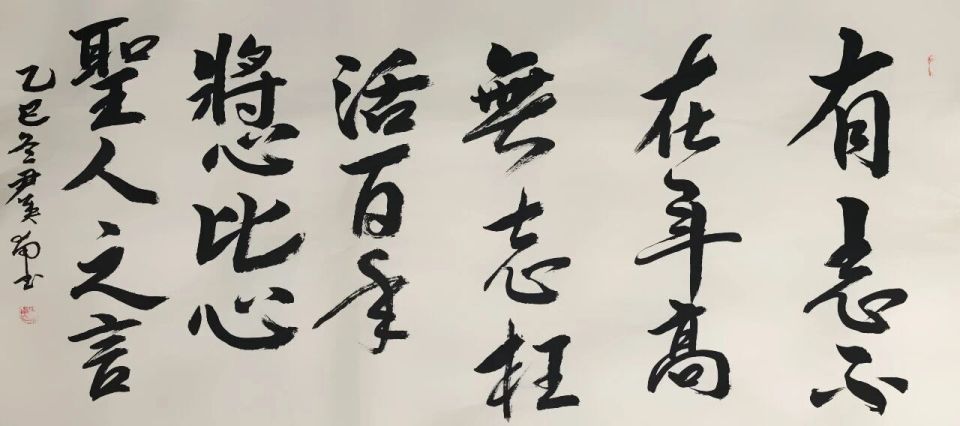 有志不
在年高
無志枉
活百年
將心比心
聖人之言
乙巳冬尹英苗书